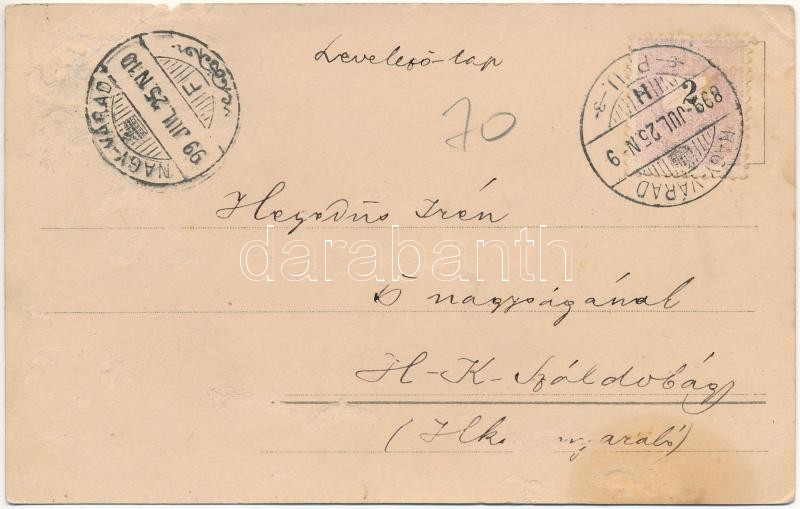 Levelező-lap
NAGY-VÁRAD
99 JUL. 25. N. 10
F
NAGY-VÁRAD
899 JUL. 25. N- 9
H
2
70
Hegedüs Irén
Ő nagyságának
H-K-Száldobágy
nyaraló)
darabanth